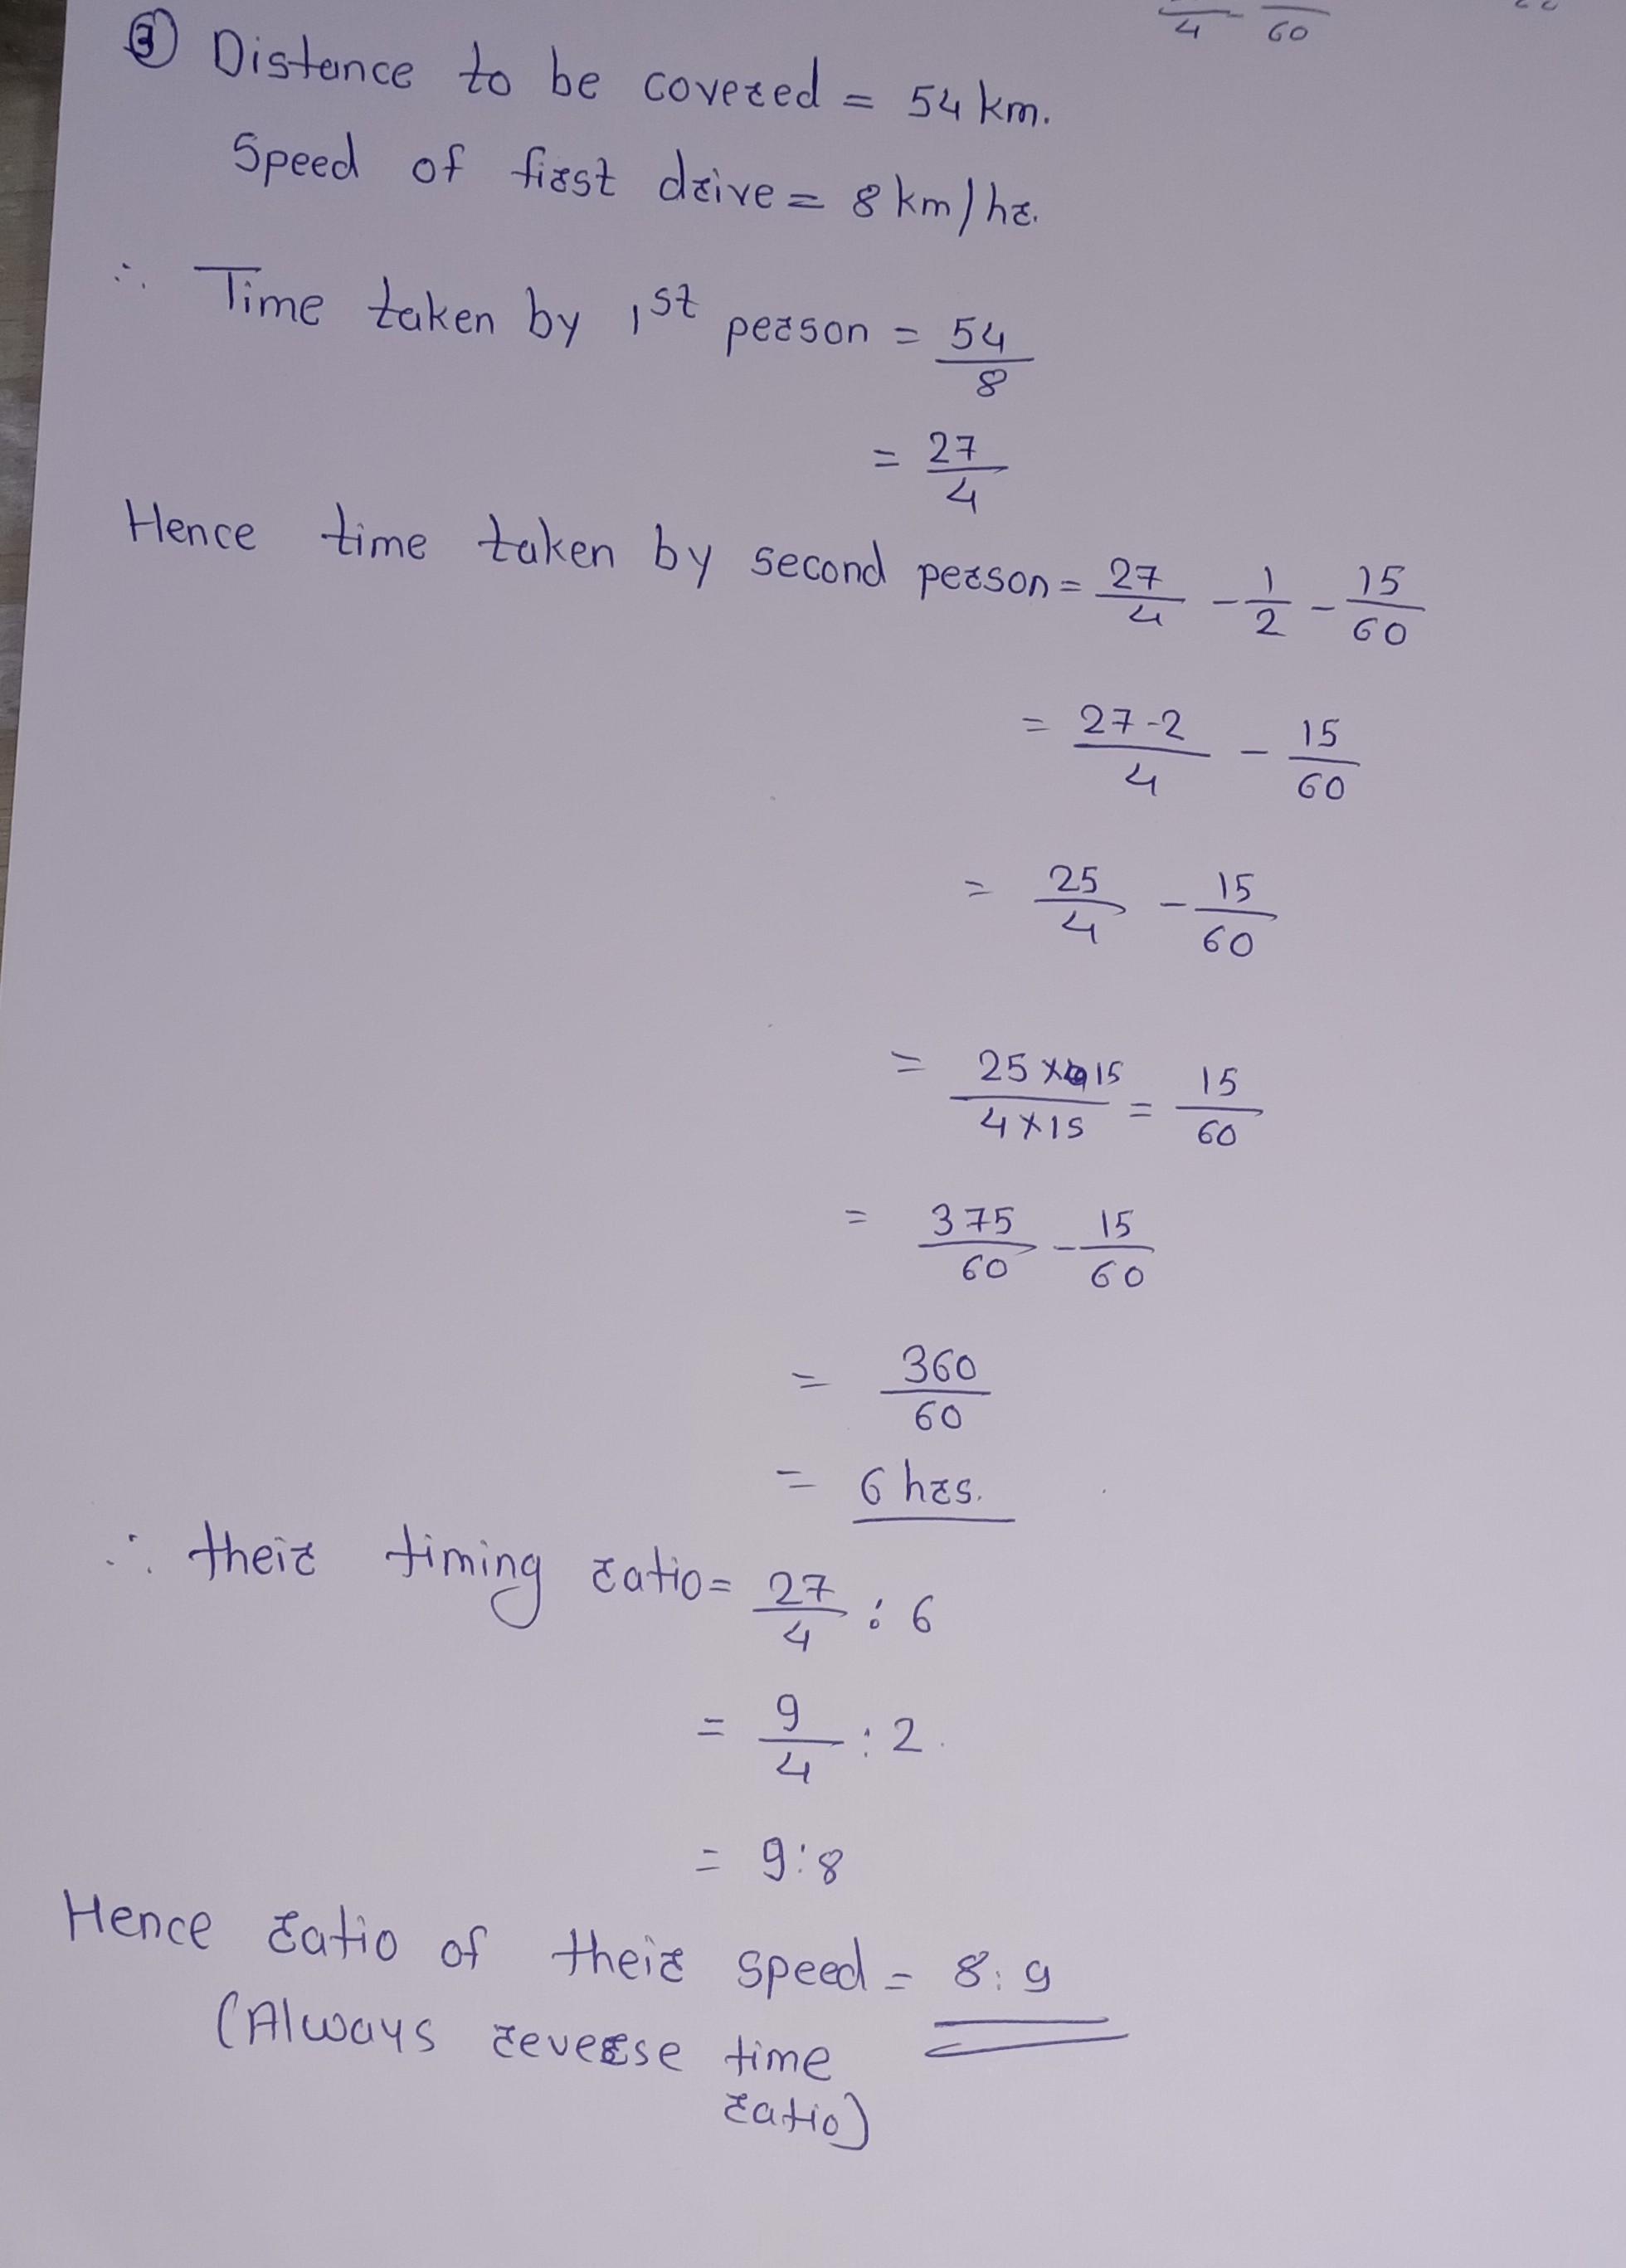 4 60
③ Distance to be covered = 54 km.
Speed of first drive = 8 km/hr.
∴ Time taken by 1st person = 54/8
= 27/4
Hence time taken by second person = 27/4 - 1/2 - 15/60
= 27-2/4 - 15/60
= 25/4 - 15/60
= 25×15/4×15 = 15/60
= 375/60 - 15/60
= 360/60
= 6 hrs.
∴ their timing ratio = 27/4 : 6
= 9/4 : 2
= 9:8
Hence ratio of their speed = 8:9
(Always reverse time
ratio)